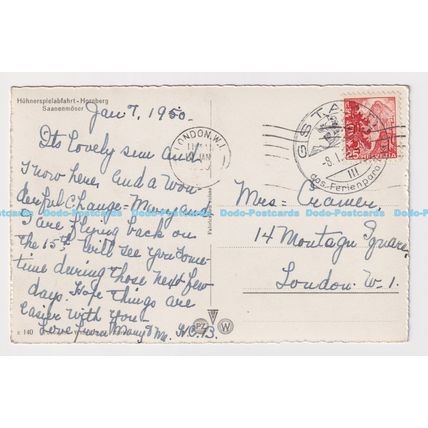 Hühnerspielabfahrt - Hornberg
Saanenmöser
Jan 7, 1950.
Its lovely sun and
snow here, and a won-
derful Change - Mary and
I are flying back on
the 15th. Will see you some-
time during those next few
days. Hope things are
easier with you -
Love from Mary & Me. H.C.B.
LONDON. W.1.
JAN
GSTAAD
-8.1.
das Ferienpara
III
25 HELVETIA
Mrs = Cramer,
14 Montagu Square,
London. W-1.
Dodo-Postcards Dodo-Postcards Dodo-Postcards Dodo-Postcards
140
W